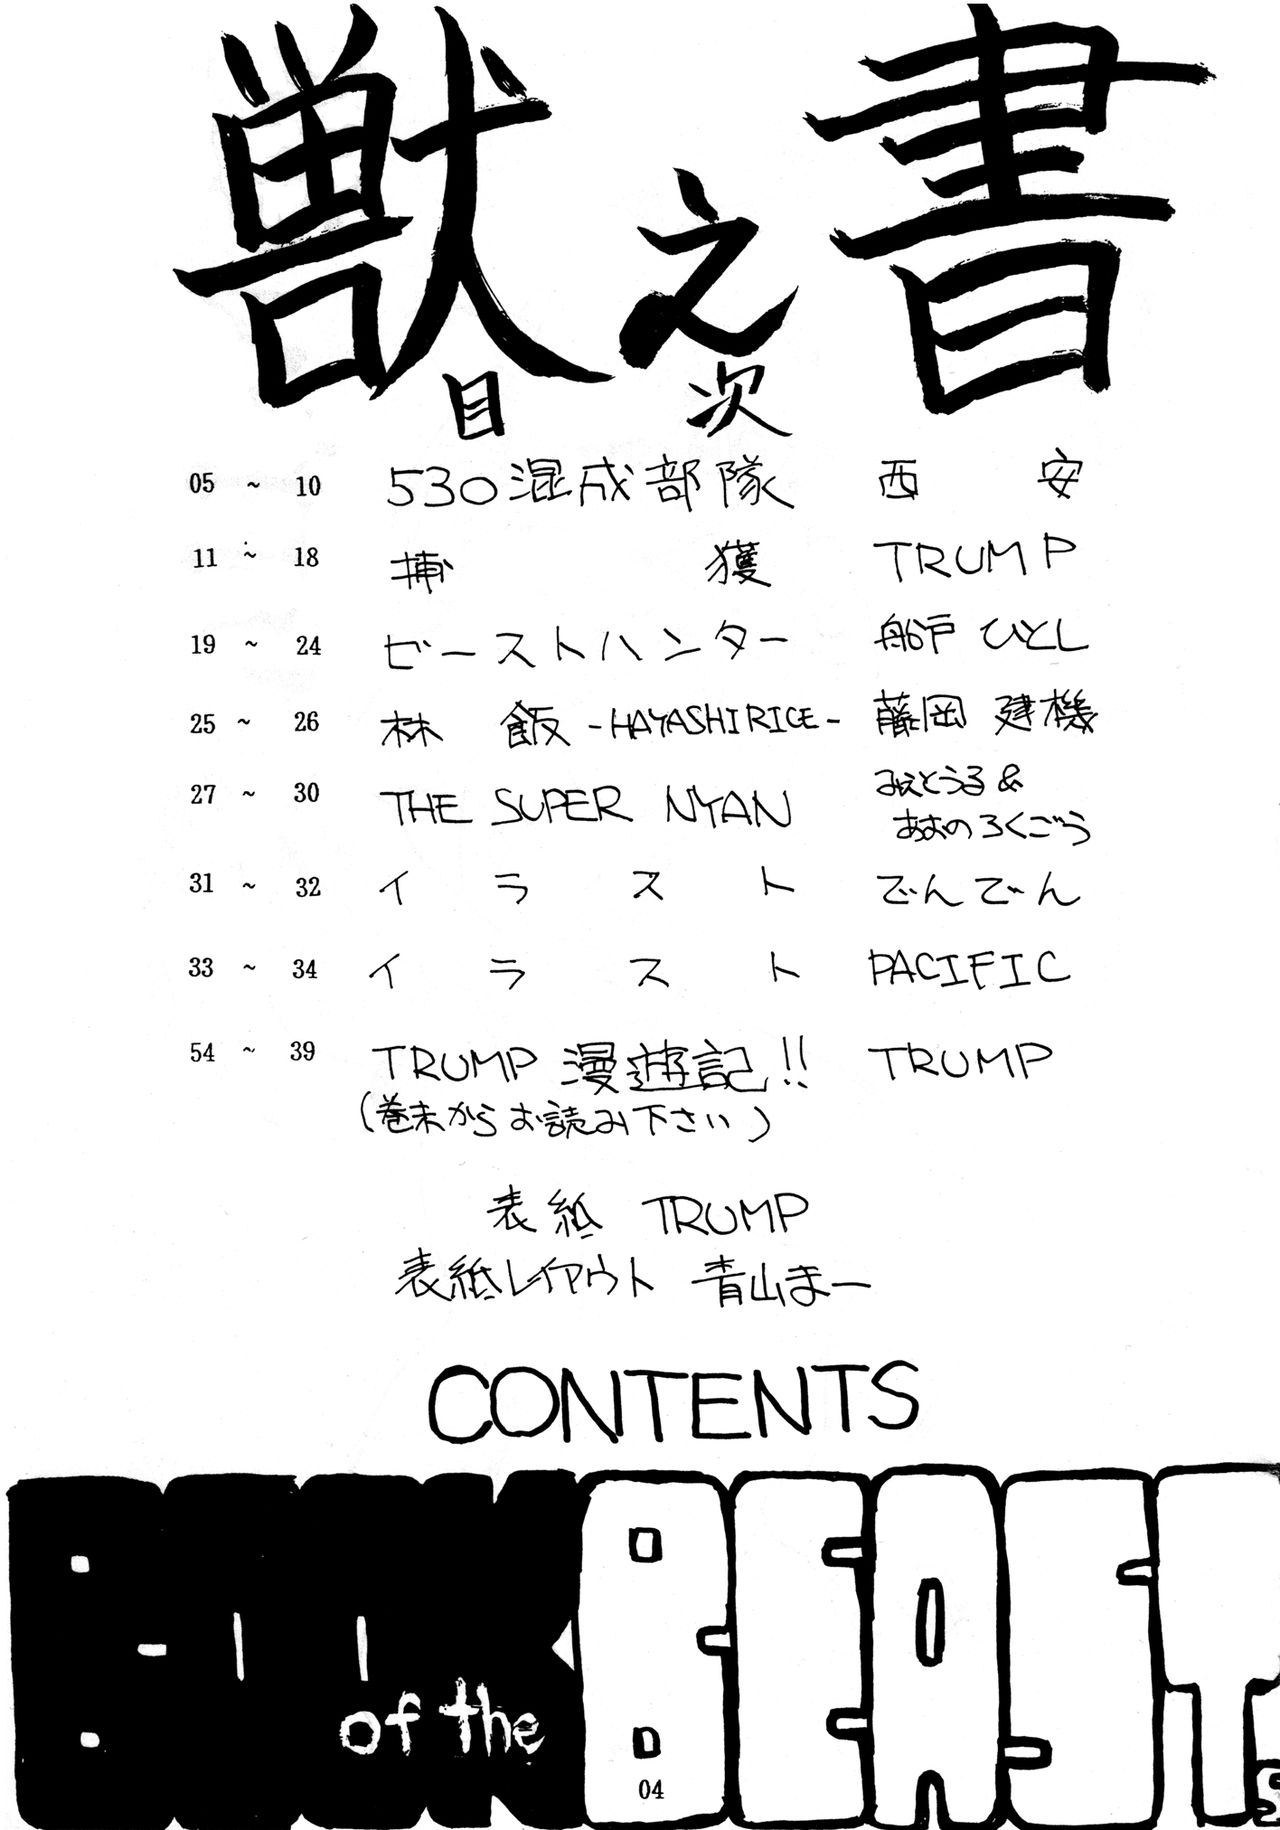 獣之書
目次
05 ~ 10 530混成部隊 西安
11 ~ 18 捕獲 TRUMP
19 ~ 24 ビーストハンター 船戸ひとし
25 ~ 26 林飯 -HAYASHI RICE- 藤岡建機
27 ~ 30 THE SUPER NYAN みえとうる&
あおのろくごう
31 ~ 32 イラスト でんでん
33 ~ 34 イラスト PACIFIC
54 ~ 39 TRUMP 漫遊記!! TRUMP
(巻末からお読み下さい)
表紙 TRUMP
表紙レイアウト 青山まー
CONTENTS
BOOK of the BEASTs
04